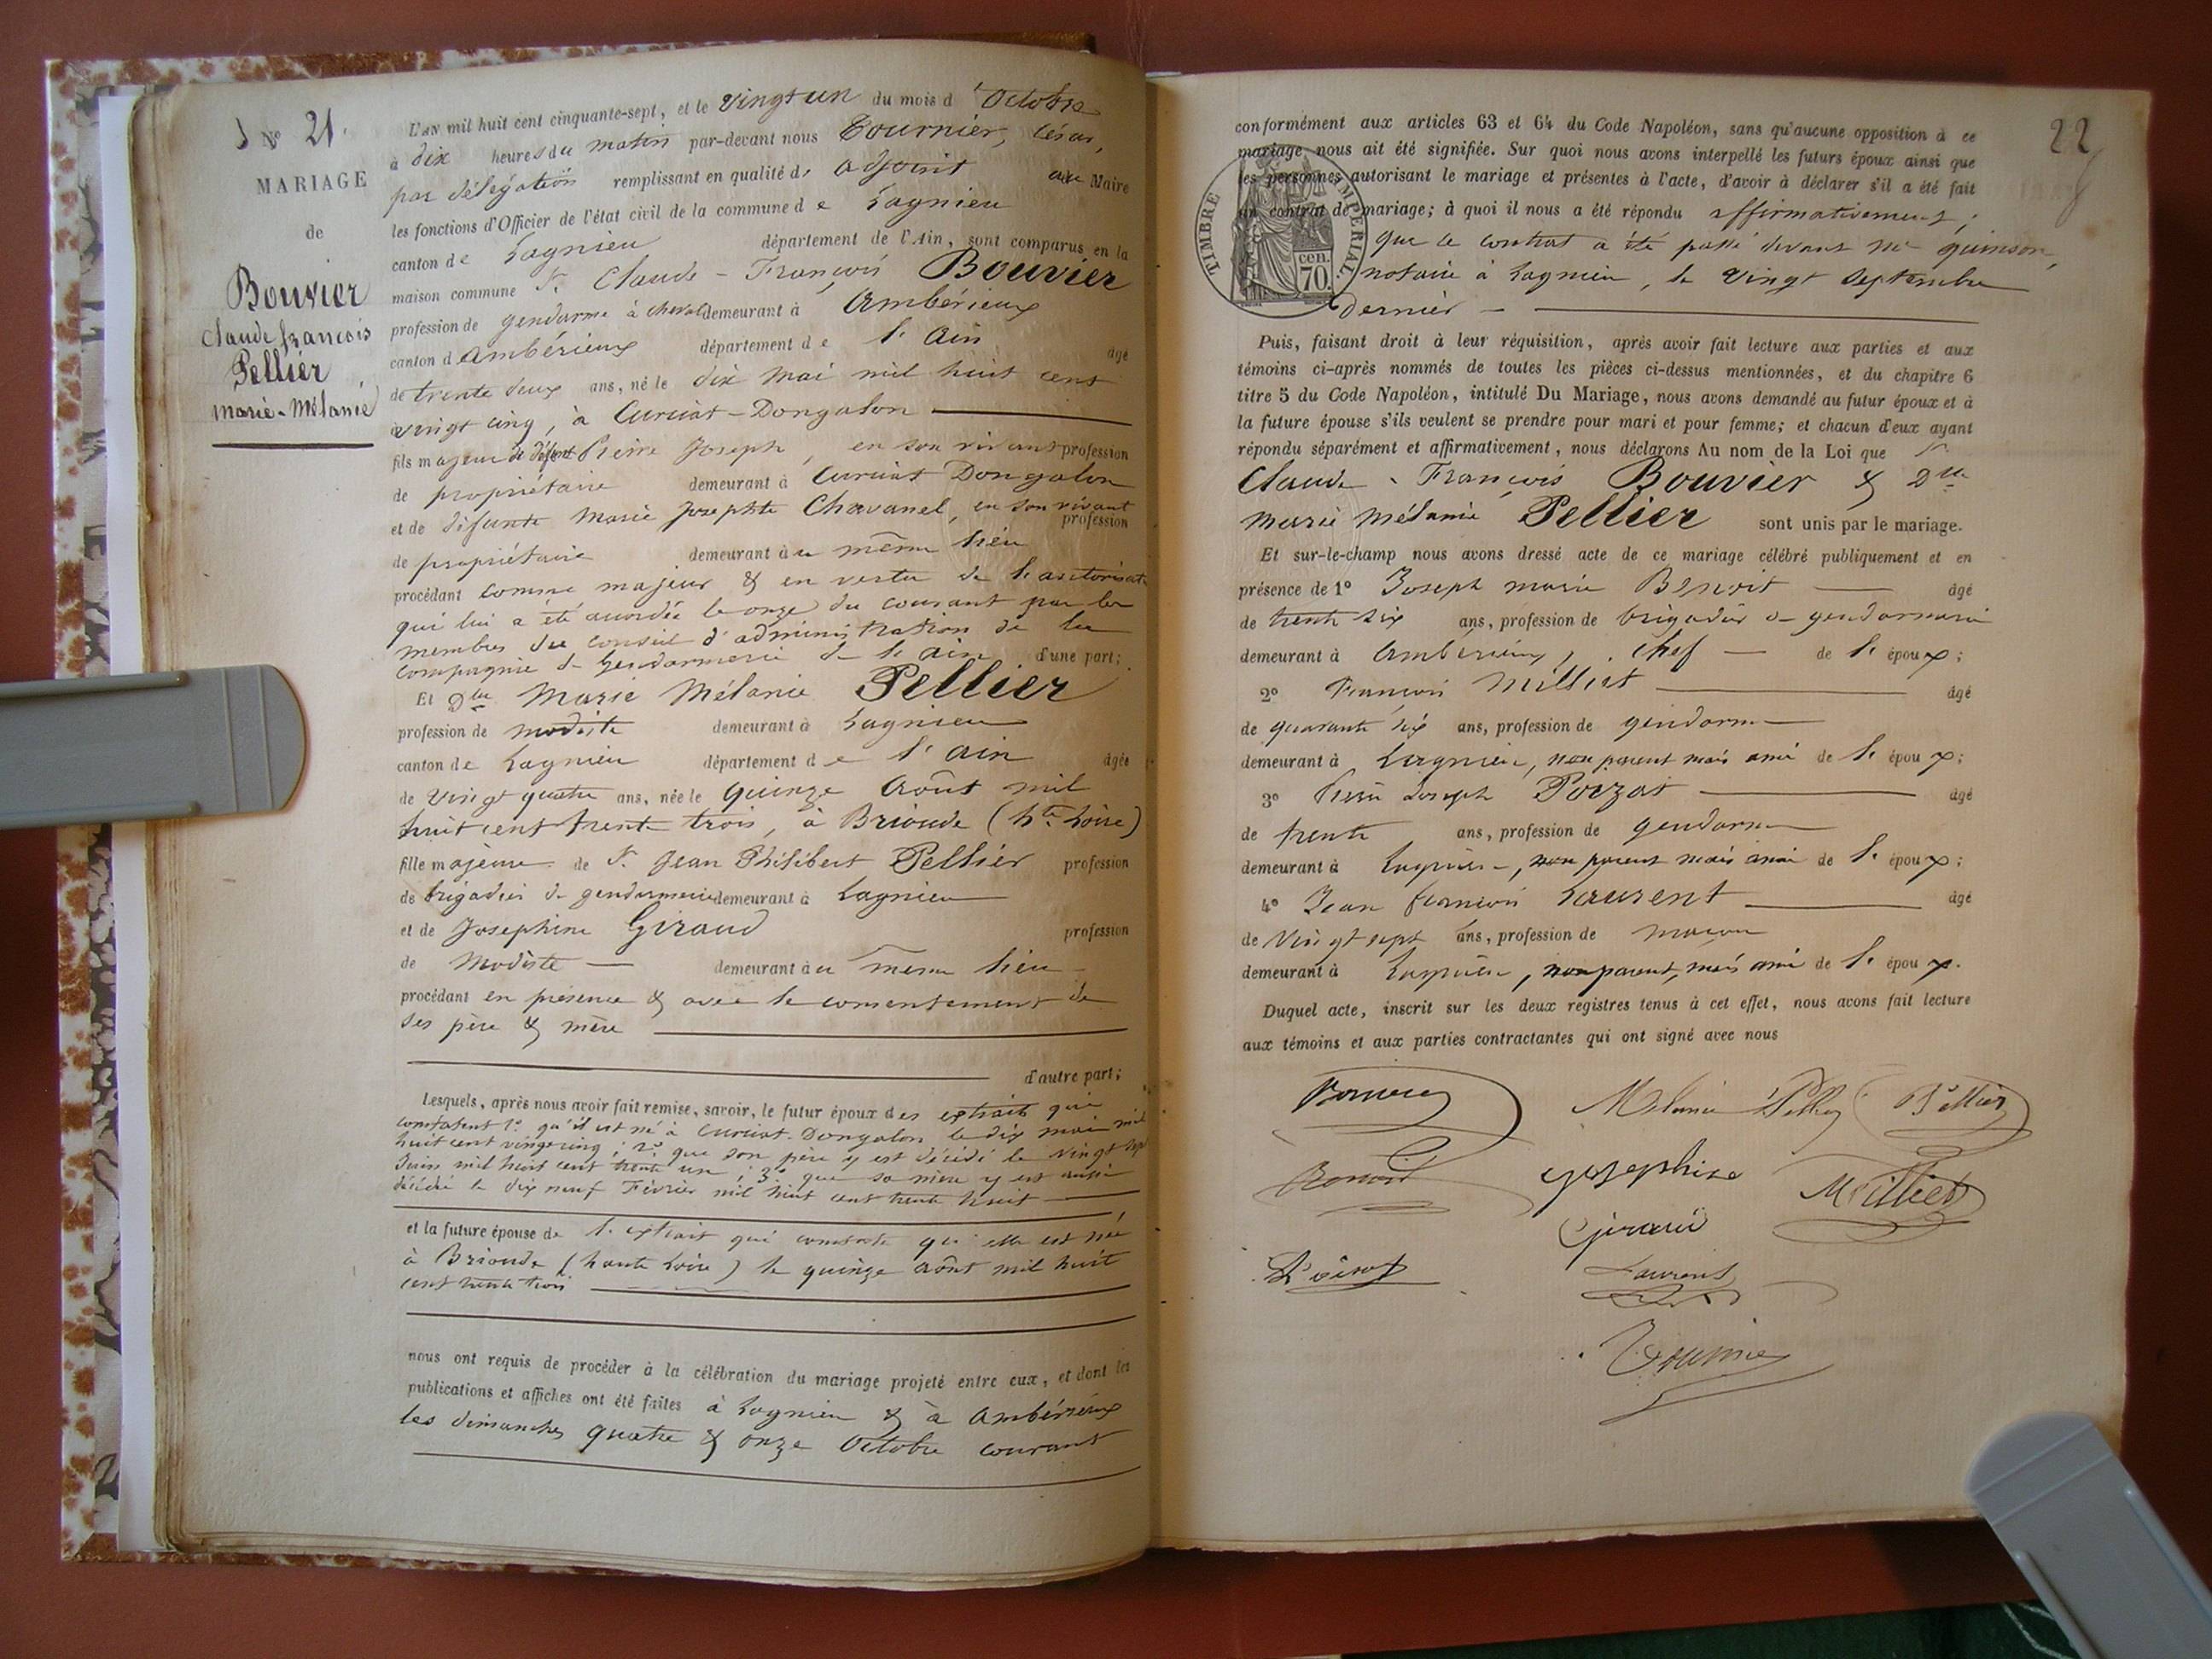 N° 21.
MARIAGE
de
Bouvier
Claude françois
Pellier
marie-Mélanie
L'AN mil huit cent cinquante-sept, et le vingt un du mois d'Octobre
à dix heures du matin par-devant nous Tournier, César,
par délégation remplissant en qualité d' adjoint au Maire
les fonctions d'Officier de l'état civil de la commune de Lagnieu
canton de Lagnieu département de l'Ain, sont comparus en la
maison commune Sr. Claude-François Bouvier
profession de gendarme à cheval demeurant à Ambérieux
canton d'ambérieux département de l'Ain âgé
de trente deux ans, né le dix mai mil huit cent
vingt cinq, à Curciat-Dongalon
fils majeur de défunt Pierre Joseph, en son vivant profession
de propriétaire demeurant à Curciat Dongalon
et de défunte Marie Josephte Chavanel, en son vivant profession
de propriétaire demeurant au même lieu
procédant comme majeur & en vertu de l'autorisat
qui lui a été accordée le onze du courant par les
membres du conseil d'administration de la
compagnie de Gendarmerie de l'ain d'une part;
Et Dlle Marie Mélanie Pellier
profession de modiste demeurant à Lagnieu
canton de Lagnieu département de l'ain âgée
de vingt quatre ans, née le quinze Août mil
huit cent trente trois, à Brioude (hte Loire)
fille majeure de Sr. Jean Philibert Pellier profession
de brigadier de gendarmerie demeurant à Lagnieu
et de Josephine Giraud profession
de Modiste demeurant au même lieu
procédant en présence & avec le consentement de
ses père & mère
d'autre part;
Lesquels, après nous avoir fait remise, savoir, le futur époux des extraits qui
constatent 1° qu'il est né à Curciat-Dongalon le dix mai mil
huit cent vingt cinq; 2° que son père y est décédé le vingt sept
Juin mil huit cent trente un; 3° que sa mère y est aussi
décédée le dix neuf Février mil huit cent trente huit
et la future épouse de l'extrait qui constate qu'elle est née
à Brioude (haute Loire) le quinze août mil huit
cent trente trois
nous ont requis de procéder à la célébration du mariage projeté entre eux, et dont les
publications et affiches ont été faites à Lagnieu & à Ambérieux
les dimanches quatre & onze Octobre courant
22
conformément aux articles 63 et 64 du Code Napoléon, sans qu'aucune opposition à ce
mariage nous ait été signifiée. Sur quoi nous avons interpellé les futurs époux ainsi que
les personnes autorisant le mariage et présentes à l'acte, d'avoir à déclarer s'il a été fait
un contrat de mariage; à quoi il nous a été répondu affirmativement,
que le contrat a été passé devant Me quinson,
notaire à Lagnieu, le vingt septembre
dernier
TIMBRE IMPÉRIAL.
70 cen.
Puis, faisant droit à leur réquisition, après avoir fait lecture aux parties et aux
témoins ci-après nommés de toutes les pièces ci-dessus mentionnées, et du chapitre 6
titre 5 du Code Napoléon, intitulé Du Mariage, nous avons demandé au futur époux et à
la future épouse s'ils veulent se prendre pour mari et pour femme; et chacun d'eux ayant
répondu séparément et affirmativement, nous déclarons Au nom de la Loi que Sr.
Claude-François Bouvier & Dlle
Marie Mélanie Pellier sont unis par le mariage.
Et sur-le-champ nous avons dressé acte de ce mariage célébré publiquement et en
présence de 1° Joseph marie Benoit âgé
de trente six ans, profession de brigadier de gendarmerie
demeurant à Ambérieux, chef de l'époux;
2° François Milliet âgé
de quarante six ans, profession de gendarme
demeurant à Lagnieu, non parent mais ami de l'époux;
3° Pierre Joseph Poizat âgé
de trente ans, profession de gendarme
demeurant à Lagnieu, non parent mais ami de l'époux;
4° Jean françois Laurent âgé
de vingt sept ans, profession de maçon
demeurant à Lagnieu, non parent, mais ami de l'époux.
Duquel acte, inscrit sur les deux registres tenus à cet effet, nous avons fait lecture
aux témoins et aux parties contractantes qui ont signé avec nous
Bouvier Mélanie Pellier Pellier
Benoit Josephine Milliet
Giraud
Laurent
Tournier